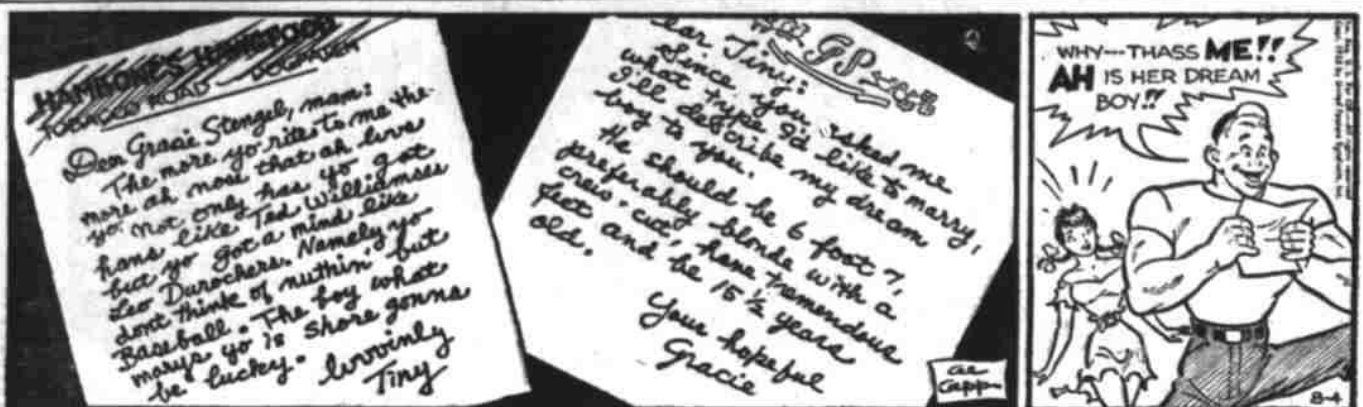 HAMBONE'S HAMSTOOR
TOBACCO ROAD DOGPATCH
Dere Gracie Stengel, mam:
The more yo rites to me the
more ah nose that ah luvs
yo. Not only has yo got
hans like Ted Williamses
but yo got a mind like
Leo Durochers. Namely yo
dont think of nuthin' but
Baseball. The boy what
marys yo is shore gonna
be lucky.
luvvinly
Tiny
Dear Tiny:
Since you asked me
what type I'd like to marry,
I'll describe my dream
boy to you.
He should be 6 foot 7,
preferably blonde with a
crew-cut, have tremendous
feet and be 15½ years
old.
Your hopeful
Gracie
AL
CAPP
WHY---THASS ME!!
AH IS HER DREAM
BOY!!
8-4